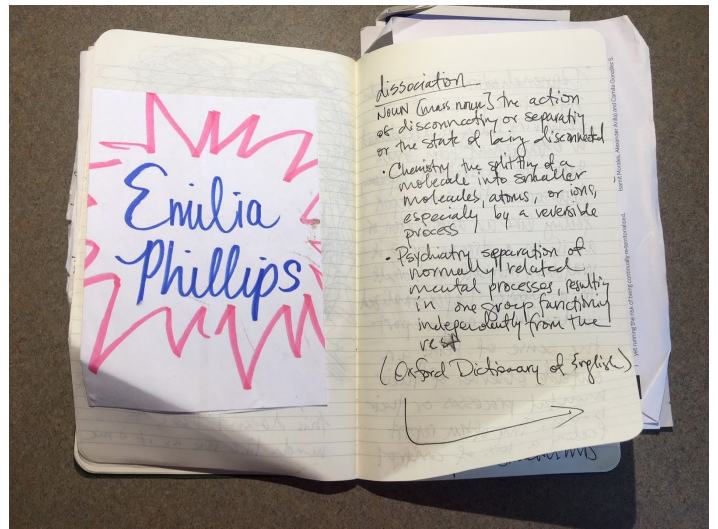 Emilia
Phillips
dissociation
NOUN [mass noun] the action
of disconnecting or separating
or the state of being disconnected
• Chemistry the splitting of a
molecule into smaller
molecules, atoms, or ions,
especially by a reversible
process
• Psychiatry separation of
normally related
mental processes, resulting
in one group functioning
independently from the
rest
(Oxford Dictionary of English)
yet running the risk of being continually re-territorialized.